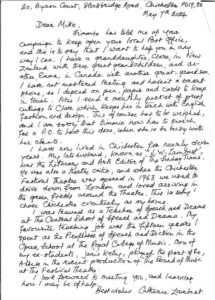 20, Byron Court, Stockbridge Road, Chichester PO19,
May 7th 2024
Dear Mike,
Winonta has told me of your
campaign to keep open your local Post Office,
and this is to say that I want to help you in any
way I can. I have a granddaughter, Clare, in New
Zealand with two great grandchildren, and
Emma, in Canada with another great grand son.
I have not mastered texting and haven't a smart
phone, so I depend on pen, paper and cards to keep
in touch. Also I send a monthly packet of great
cuttings to Clare which keeps her in touch with English
fashion and design. This of course has to be weighed,
and I am sorry that Winonta now has to search
for a P.O. to host this done, when she is so busy with
her clients.
I have now lived in Chichester for nearly eleven
years. My late husband, known as J.W. Lambert
was the Literary and Arts Editor of the Sunday Times.
He was also a theatre critic, and when the Chichester
Festival Theatre was opened in 1963 we used to
drive down from London and loved arriving in
the green fields around the Theatre. This is why I
chose Chichester eventually as my home.
I was trained as a Teacher of Speech and Drama
at the Central School of Speech and Drama. My
favourite teaching job was the fifteen years I
spent as the Professor of Speech and Diction in the
Opera School at the Royal College of Music. One of
my ex-students, played the part of the
in the recent production of The Sound of Music
at the Festival Theatre.
I look forward to meeting you, and learning
how I may be of help.
Best wishes Catherine Lambert